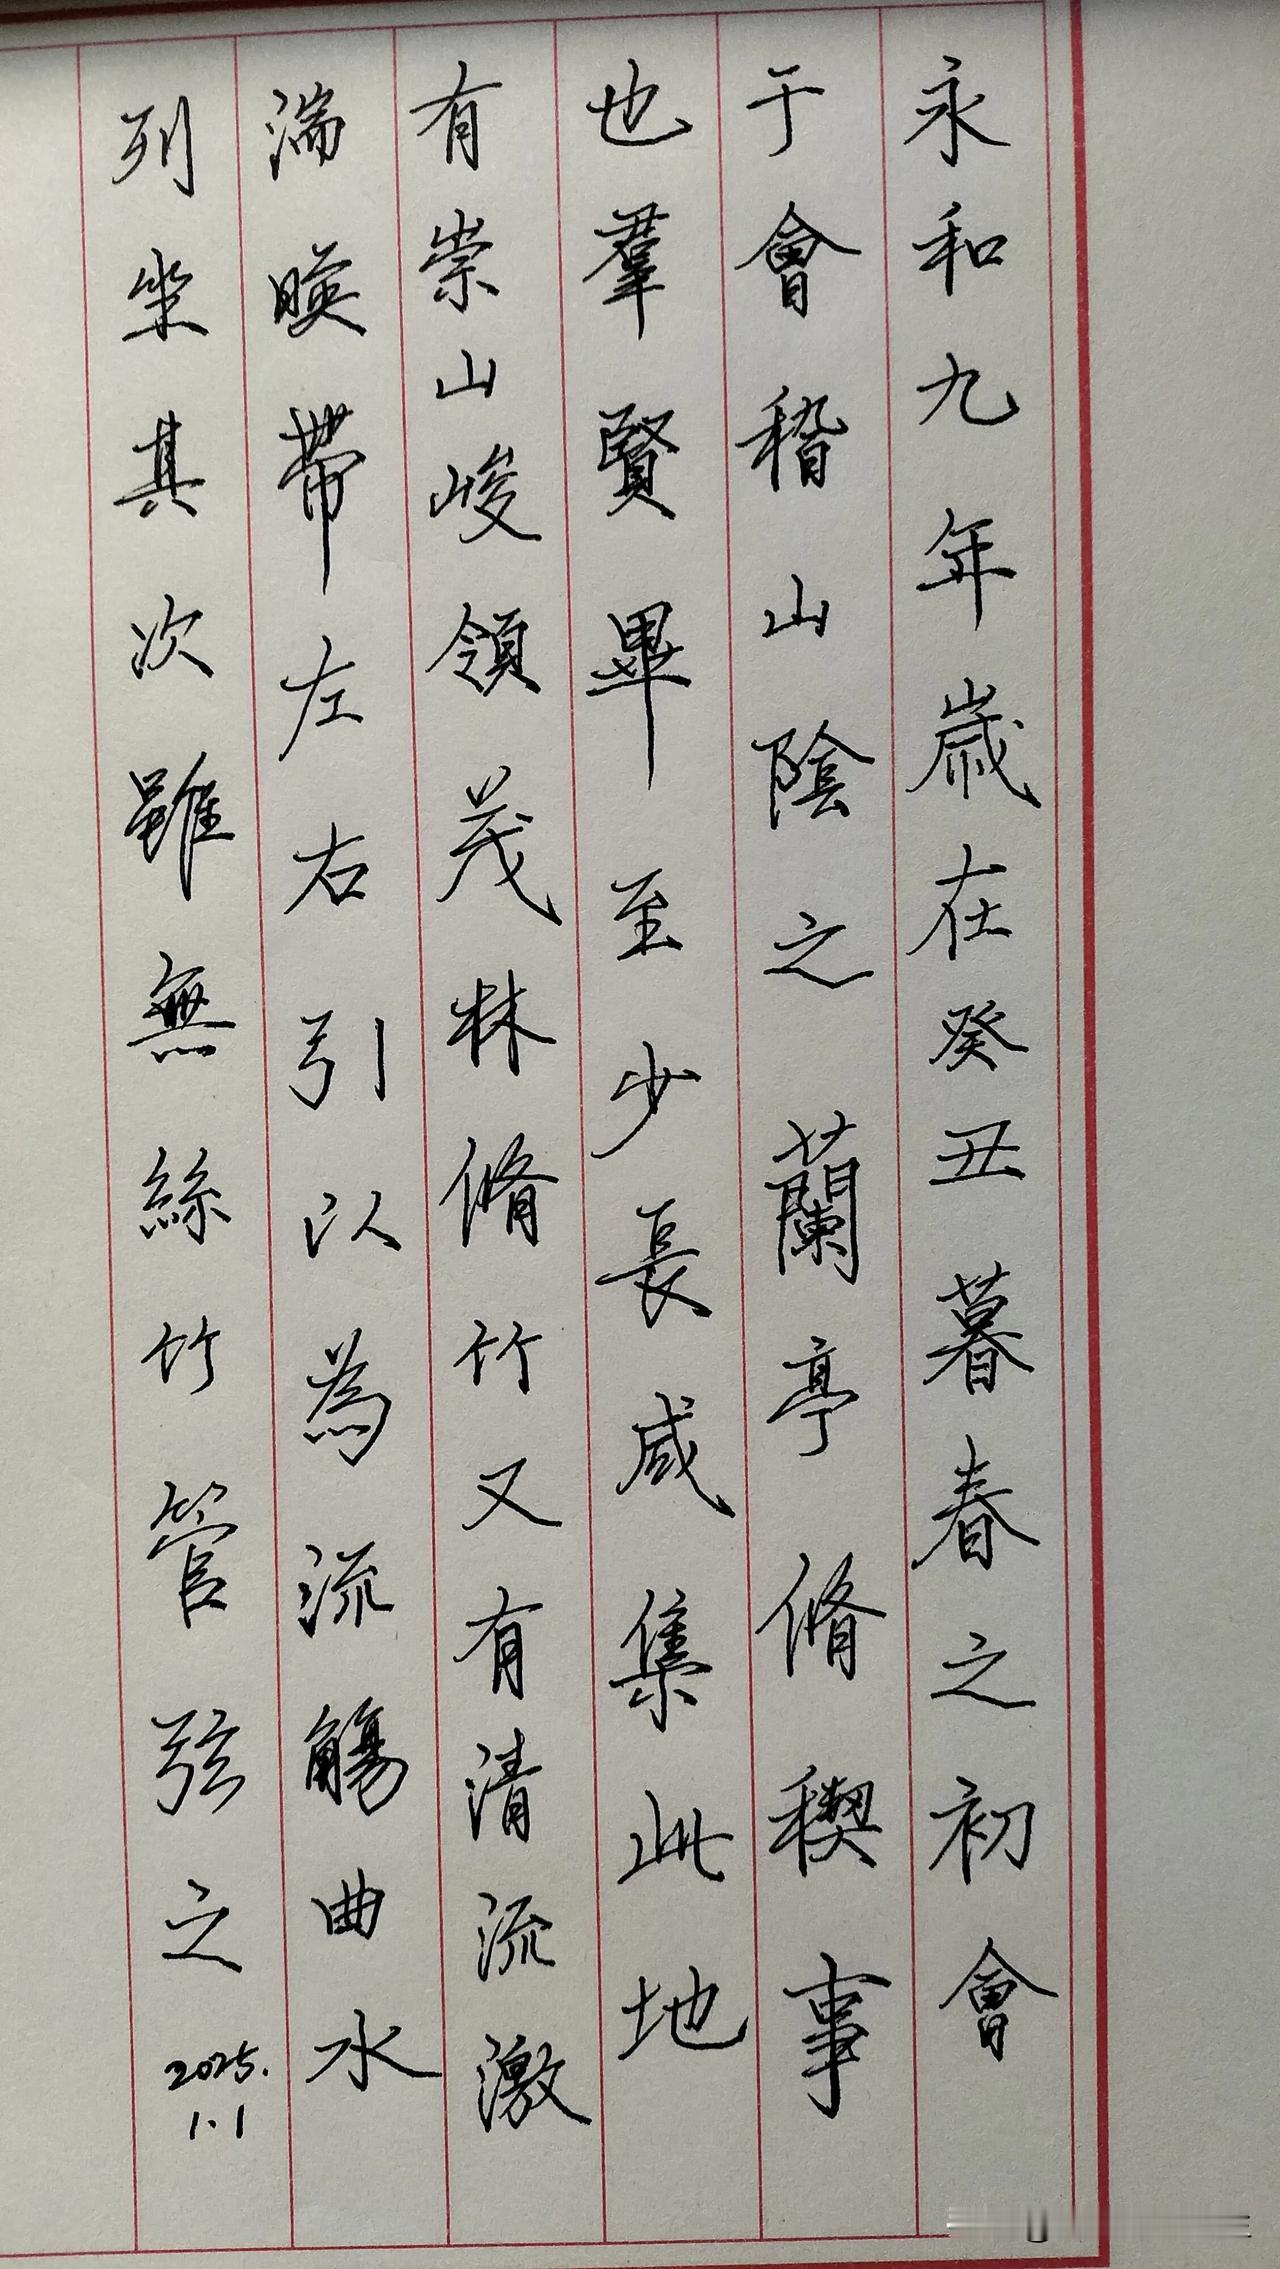 永和九年歲在癸丑暮春之初會
于會稽山陰之蘭亭脩稧事
也羣賢畢至少長咸集此地
有崇山峻領茂林脩竹又有清流激
湍暎帶左右引以為流觴曲水
列坐其次雖無絲竹管弦之
2025.
1.1